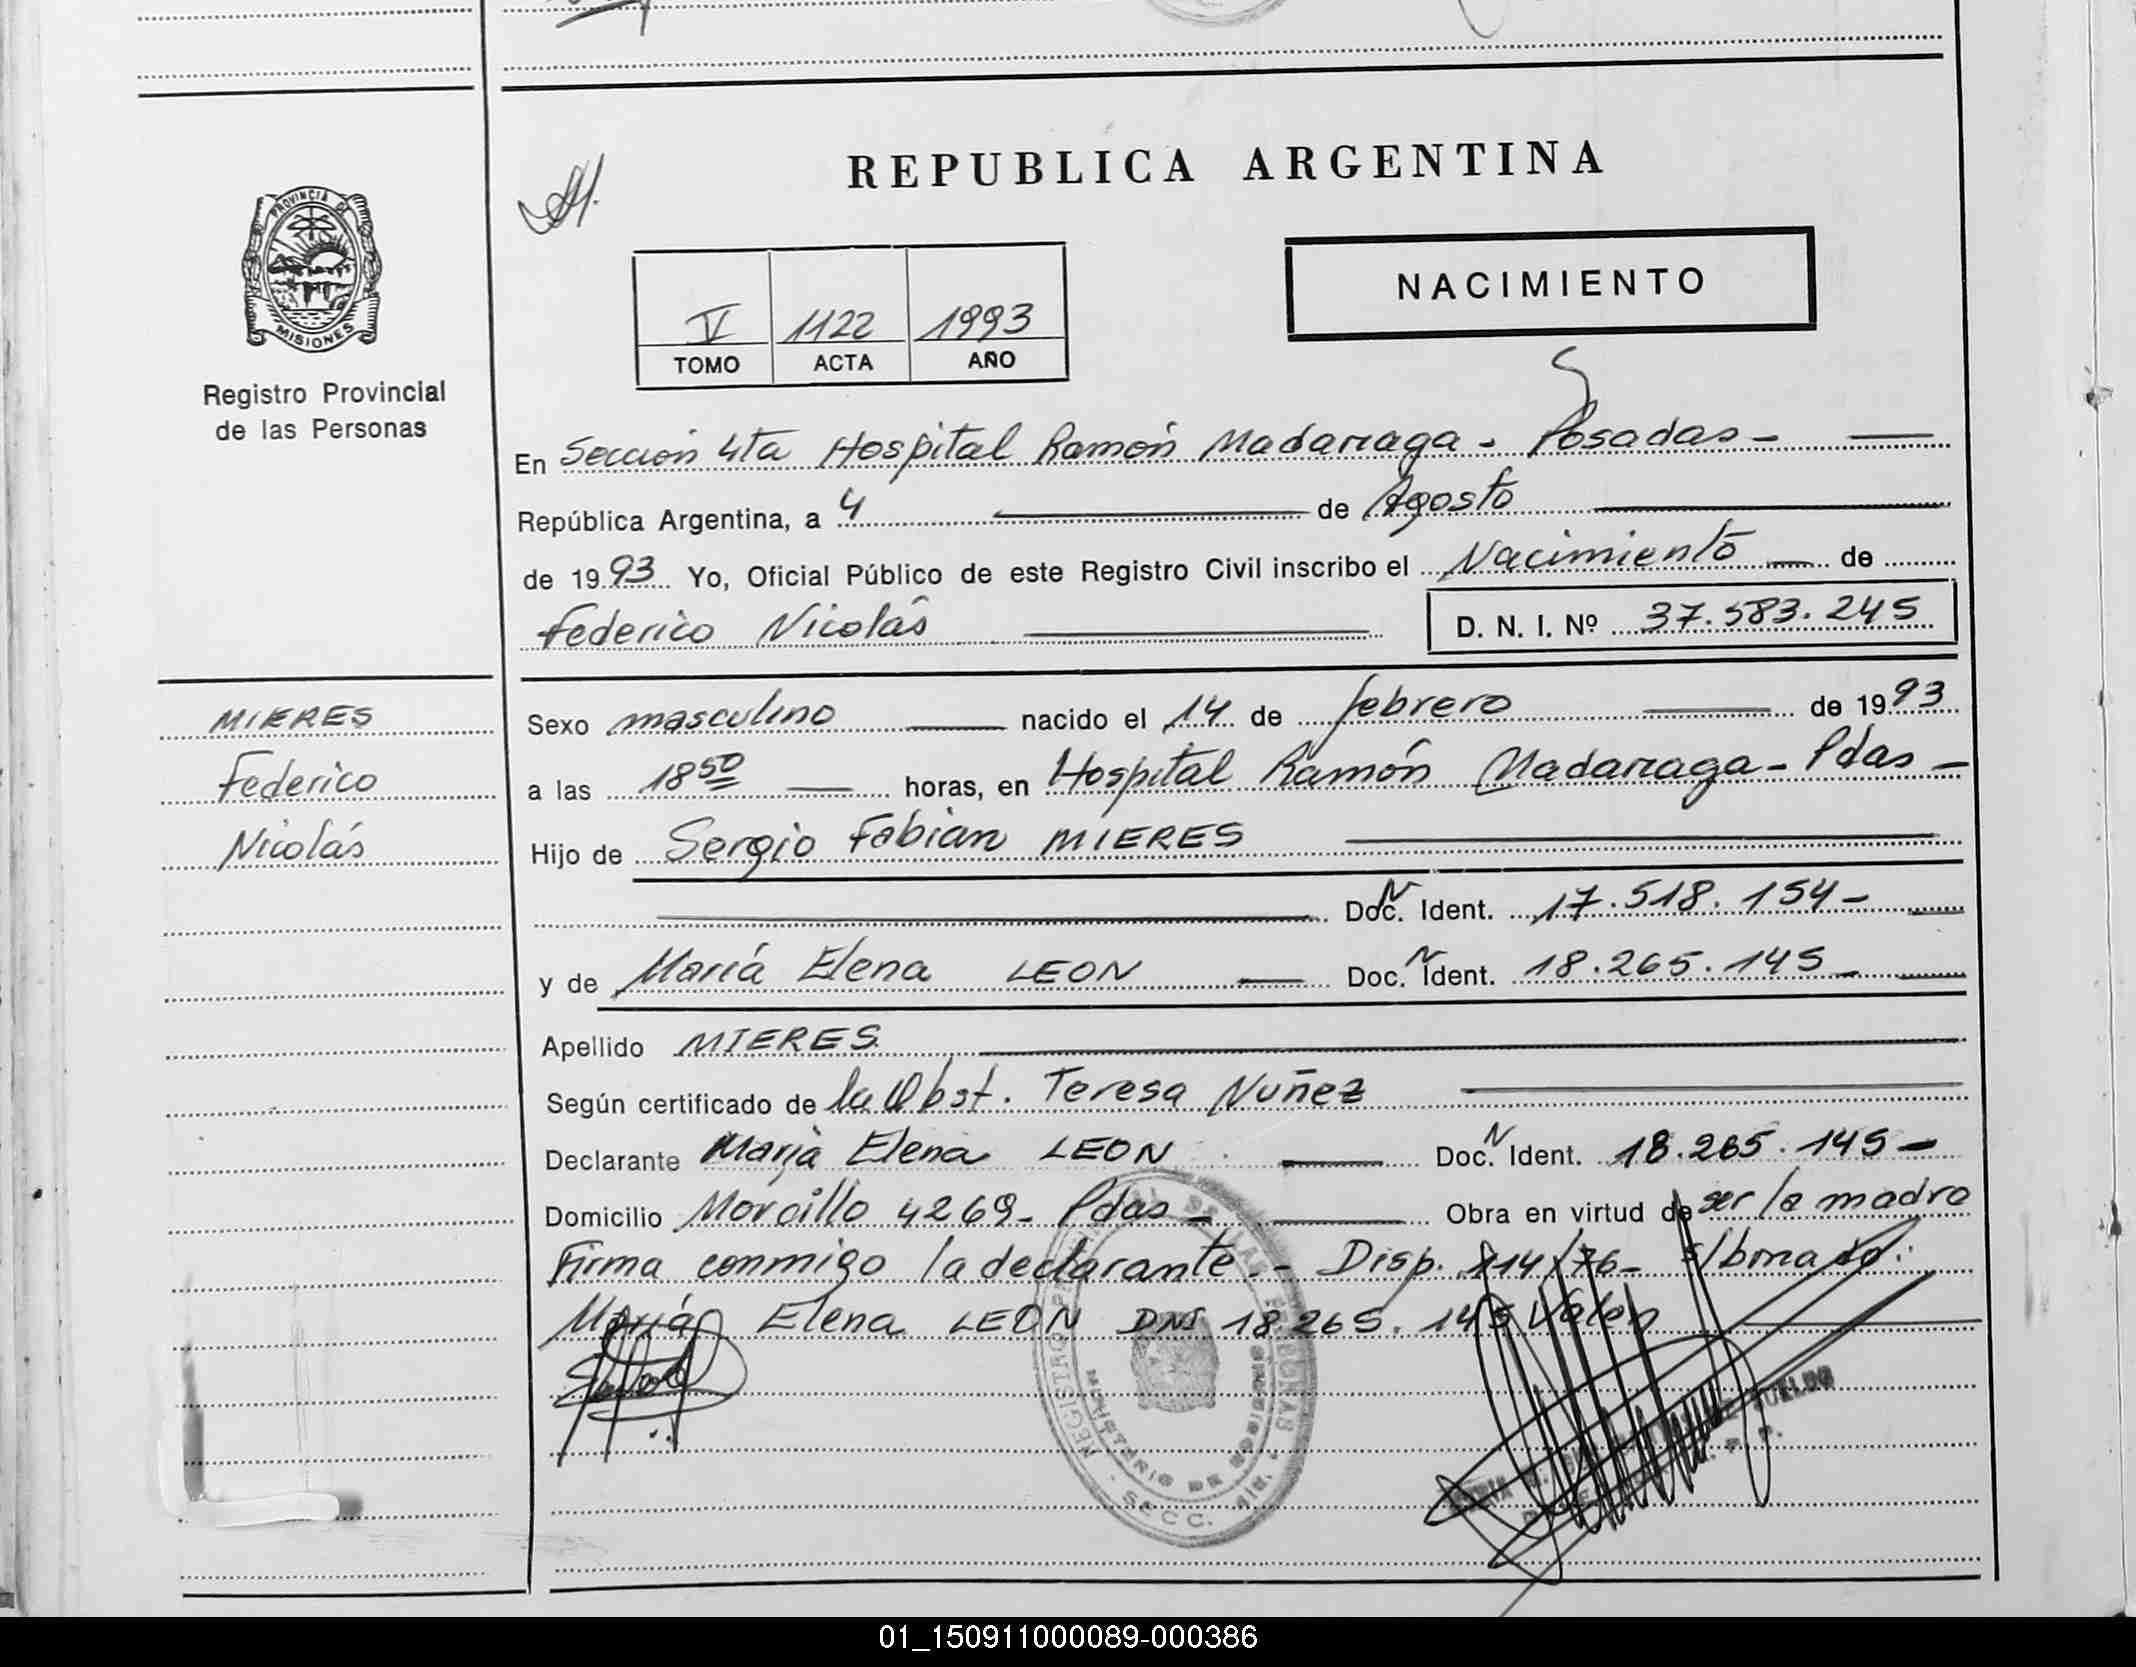 REPUBLICA ARGENTINA
PROVINCIA DE
MISIONES
Registro Provincial
de las Personas
V 1122 1993
TOMO ACTA AÑO
NACIMIENTO
En Sección 4ta Hospital Ramón Madariaga - Posadas -
República Argentina, a 4 de Agosto
de 1993 Yo, Oficial Público de este Registro Civil inscribo el Nacimiento de
Federico Nicolás D. N. I. Nº 37.583.245
MIERES
Federico
Nicolás
Sexo masculino nacido el 14 de febrero de 1993
a las 18 50 horas, en Hospital Ramón Madariaga - Pdas -
Hijo de Sergio Fabian MIERES
Doc. N Ident. 17.518.154 -
y de María Elena LEON Doc. N Ident. 18.265.145 -
Apellido MIERES
Según certificado de la Obst. Teresa Nuñez
Declarante María Elena LEON Doc. N Ident. 18.265.145 -
Domicilio Morcillo 4269 - Pdas - Obra en virtud de ser la madre
Firma conmigo la declarante. - Disp. 114/76 - s/borrado:
María Elena LEON DNI 18.265.145 Valen
REGISTRO PROVINCIAL DE LAS PERSONAS
MINISTERIO DE GOBIERNO
SECC. 4ta.
01_150911000089-000386